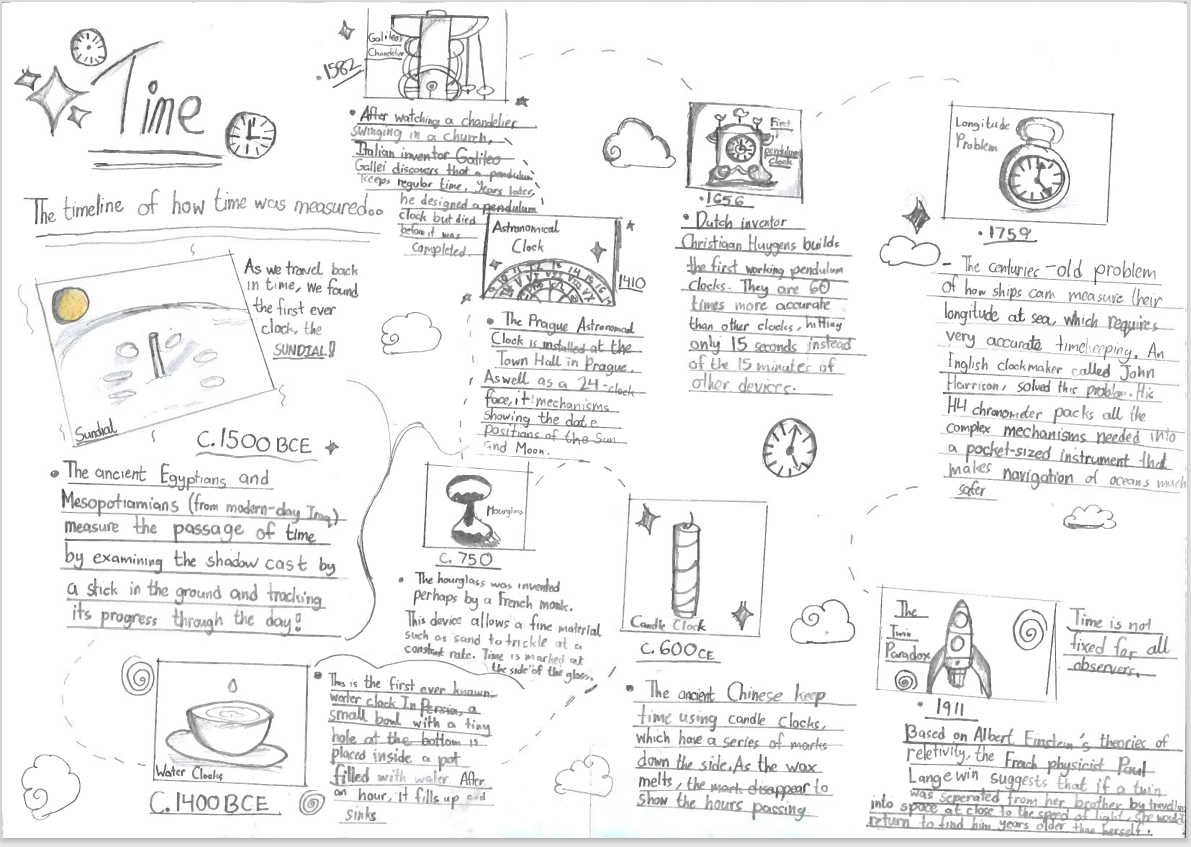 Time
The timeline of how time was measured...
As we travel back
in time, we found
the first ever
clock, the
SUNDIAL!
Sundial
C.1500 BCE
• The ancient Egyptians and
Mesopotiamians (from modern-day Iraq)
measure the passage of time
by examining the shadow cast by
a stick in the ground and tracking
its progress through the day!
Water Clocks
C.1400BCE
• This is the first ever known
water clock In Persia, a
small bowl with a tiny
hole at the bottom is
placed inside a pot
filled with water. After
an hour, it fills up and
sinks
C. 750
Hourglass
• The hourglass was invented
perhaps by a French monk.
This device allows a fine material
such as sand to trickle at a
constant rate. Time is marked at
the side of the glass.
Candle Clock
C.600CE
• The ancient Chinese keep
time using candle clocks,
which have a series of marks
down the side. As the wax
melts, the mark disappear to
show the hours passing
Astronomical
Clock
1410
• The Prague Astronomical
Clock is installed at the
Town Hall in Prague.
Aswell as a 24-clock
face, it mechanisms
showing the date
positions of the Sun
and Moon.
Galileo's
Chandelier
• 1582
• After watching a chandelier
swinging in a church,
Italian inventor Galileo
Gallei discovers that a pendulum
keeps regular time. Years later,
he designed a pendulum
clock but died
before it was
Completed
First
pendulum
clock
• 1656
• Dutch inventor
Christiaan Huygens builds
the first working pendulum
clocks. They are 60
times more accurate
than other clocks, hitting
only 15 seconds instead
of the 15 minutes of
other devices.
Longitude
Problem
• 1759
- The centuries-old problem
of how ships cam measure their
longitude at sea, which requires
very accurate timekeeping. An
English clockmaker called John
Harrison, solved this problem. His
H4 chronometer packs all the
complex mechanisms needed into
a pocket-sized instrument that
makes navigation of oceans much
safer
The
Twin
Paradox
Time is not
fixed for all
observers.
• 1911
Based on Albert Einstein's theories of
reletivity, the French physicist Paul
Langewin suggests that if a twin
was seperated from her brother by travelling
into space at close to the speed of light, she would
return to find him years older than herself.